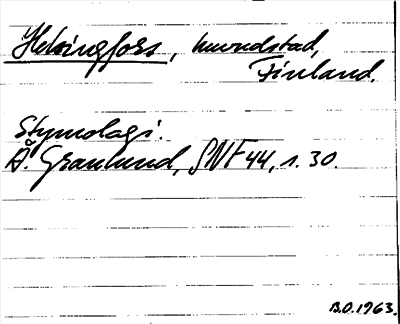 Helsingfors, huvudstad,
Finland.
Etymologi.
Å. Granlund, SNF 44, s. 30.
B.O. 1963.